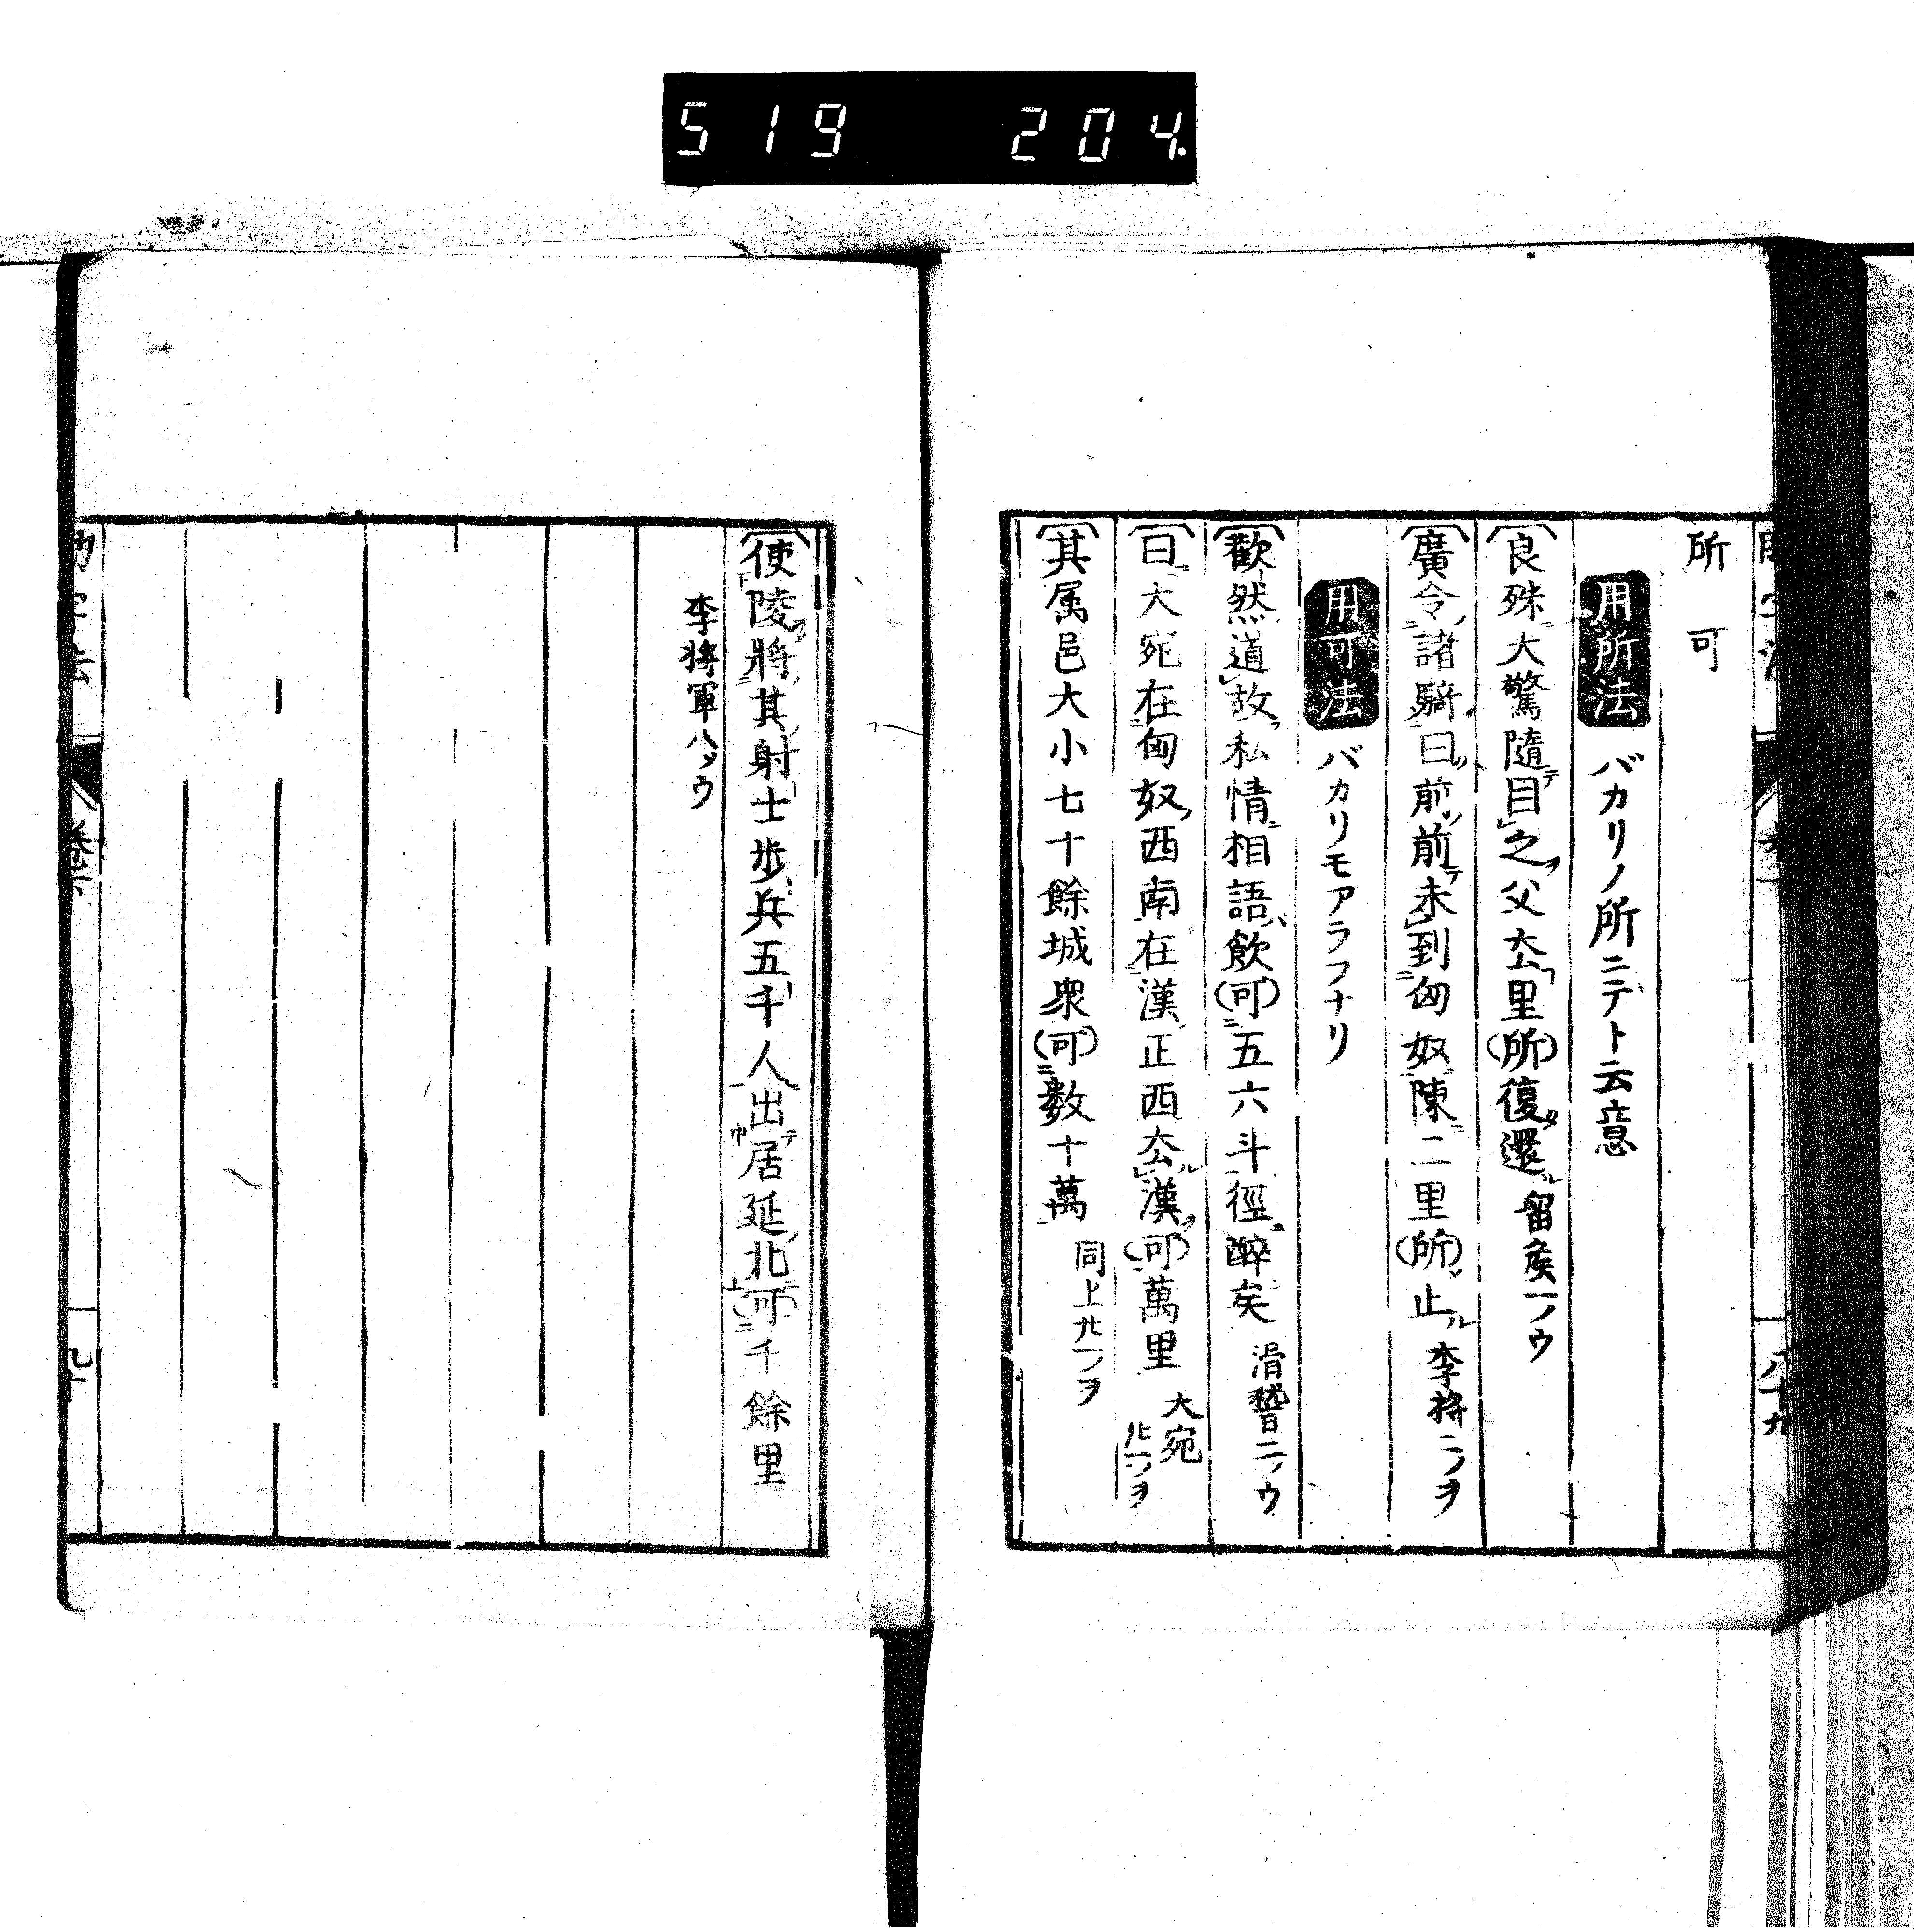 519 204.
所可
用所法 バカリノ所ニテト云意
良殊大驚隨目之父去里(所)復還 留矦一ノウ
廣令諸騎曰前前未到匈奴陳二里(所)止 李將二ノヲ
用可法 バカリモアラフナリ
歡然道故私情相語飲(可)五六斗徑醉矣 滑稽二ノウ
曰大宛在匈奴西南在漢正西去漢(可)萬里 大宛
其属邑大小七十餘城衆(可)數十萬 同上
使陵將其射士歩兵五千人出居延北(可)千餘里
李將軍